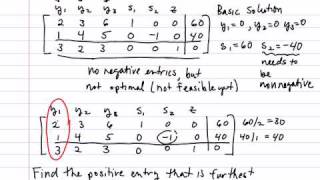 y₁ y₂ y₃ s₁ s₂ z
2 3 6 1 0 0 60
1 4 5 0 -1 0 40
3 2 0 0 0 1 0
Basic Solution
y₁=0, y₂=0 y₃=0
s₁=60 s₂=-40
needs to
be
nonnegative
no negative entries, but
not optimal (not feasible yet)
y₁ y₂ y₃ s₁ s₂ z
2 3 6 1 0 0 60 60/2=30
1 4 5 0 -1 0 40 40/1=40
3 2 0 0 0 1 0
Find the positive entry that is furthest